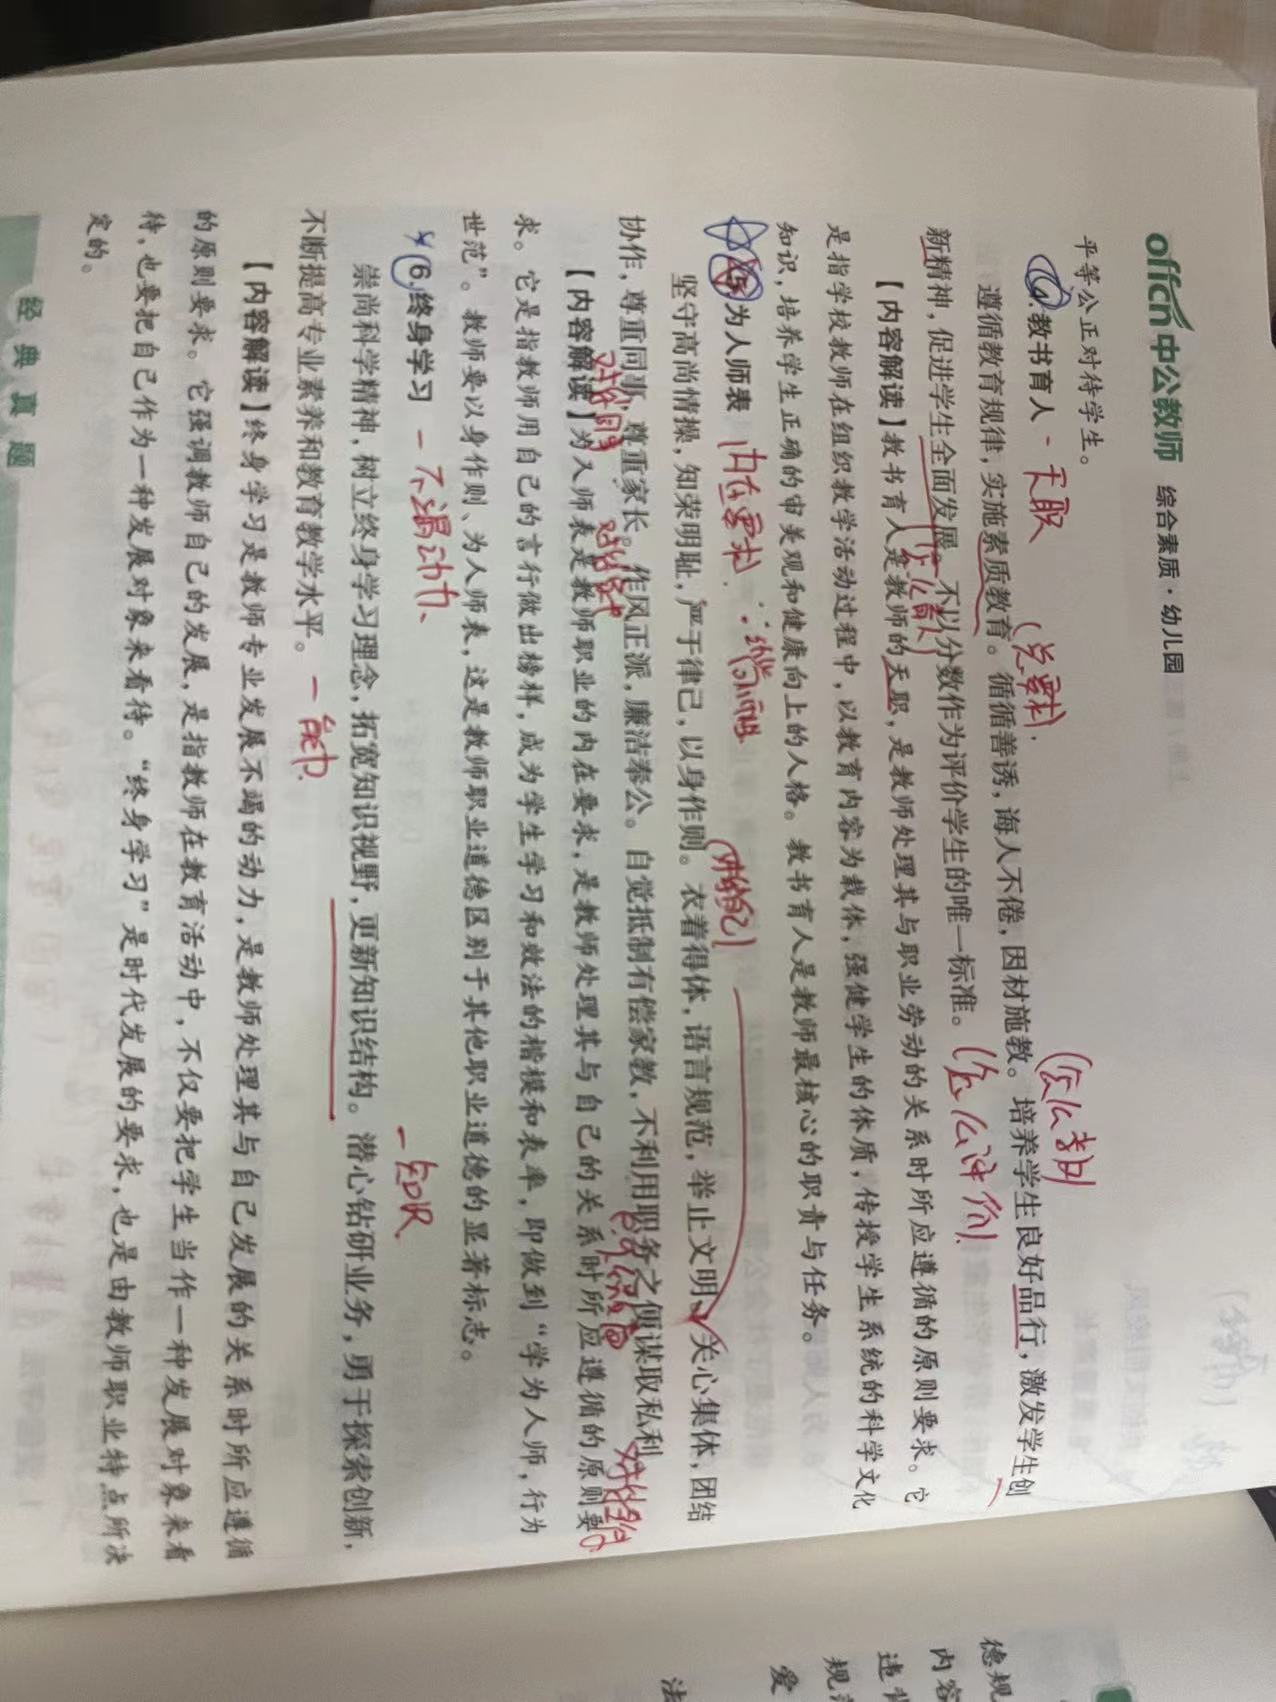 offcn中公教师 综合素质·幼儿园
平等公正对待学生。
4.教书育人 - 天职 (总要求).
(怎么教)
遵循教育规律，实施素质教育。循循善诱，诲人不倦，因材施教。培养学生良好品行，激发学生创
新精神，促进学生全面发展。不以分数作为评价学生的唯一标准。(怎么评价).
(怎么育人)
【内容解读】教书育人是教师的天职，是教师处理其与职业劳动的关系时所应遵循的原则要求。它
是指学校教师在组织教学活动过程中，以教育内容为载体，强健学生的体质，传授学生系统的科学文化
知识，培养学生正确的审美观和健康向上的人格。教书育人是教师最核心的职责与任务。
5.为人师表 内在要求.
(对待自己)
坚守高尚情操，知荣明耻，严于律己，以身作则。衣着得体，语言规范，举止文明。关心集体，团结
协作，尊重同事，尊重家长。作风正派，廉洁奉公。自觉抵制有偿家教，不利用职务之便谋取私利。
对待同事 对待家长
【内容解读】为人师表是教师职业的内在要求，是教师处理其与自己的关系时所应遵循的原则要
求。它是指教师用自己的言行做出榜样，成为学生学习和效法的楷模和表率，即做到“学为人师，行为
世范”。教师要以身作则、为人师表，这是教师职业道德区别于其他职业道德的显著标志。
6.终身学习 - 不竭动力、
- 知识
崇尚科学精神，树立终身学习理念，拓宽知识视野，更新知识结构。潜心钻研业务，勇于探索创新，
不断提高专业素养和教育教学水平。 - 能力.
【内容解读】终身学习是教师专业发展不竭的动力，是教师处理其与自己发展的关系时所应遵循
的原则要求。它强调教师自己的发展，是指教师在教育活动中，不仅要把学生当作一种发展对象来看
待，也要把自己作为一种发展对象来看待。“终身学习”是时代发展的要求，也是由教师职业特点所决
定的。
经典真题
德规
内容
违背
规范
爱
法